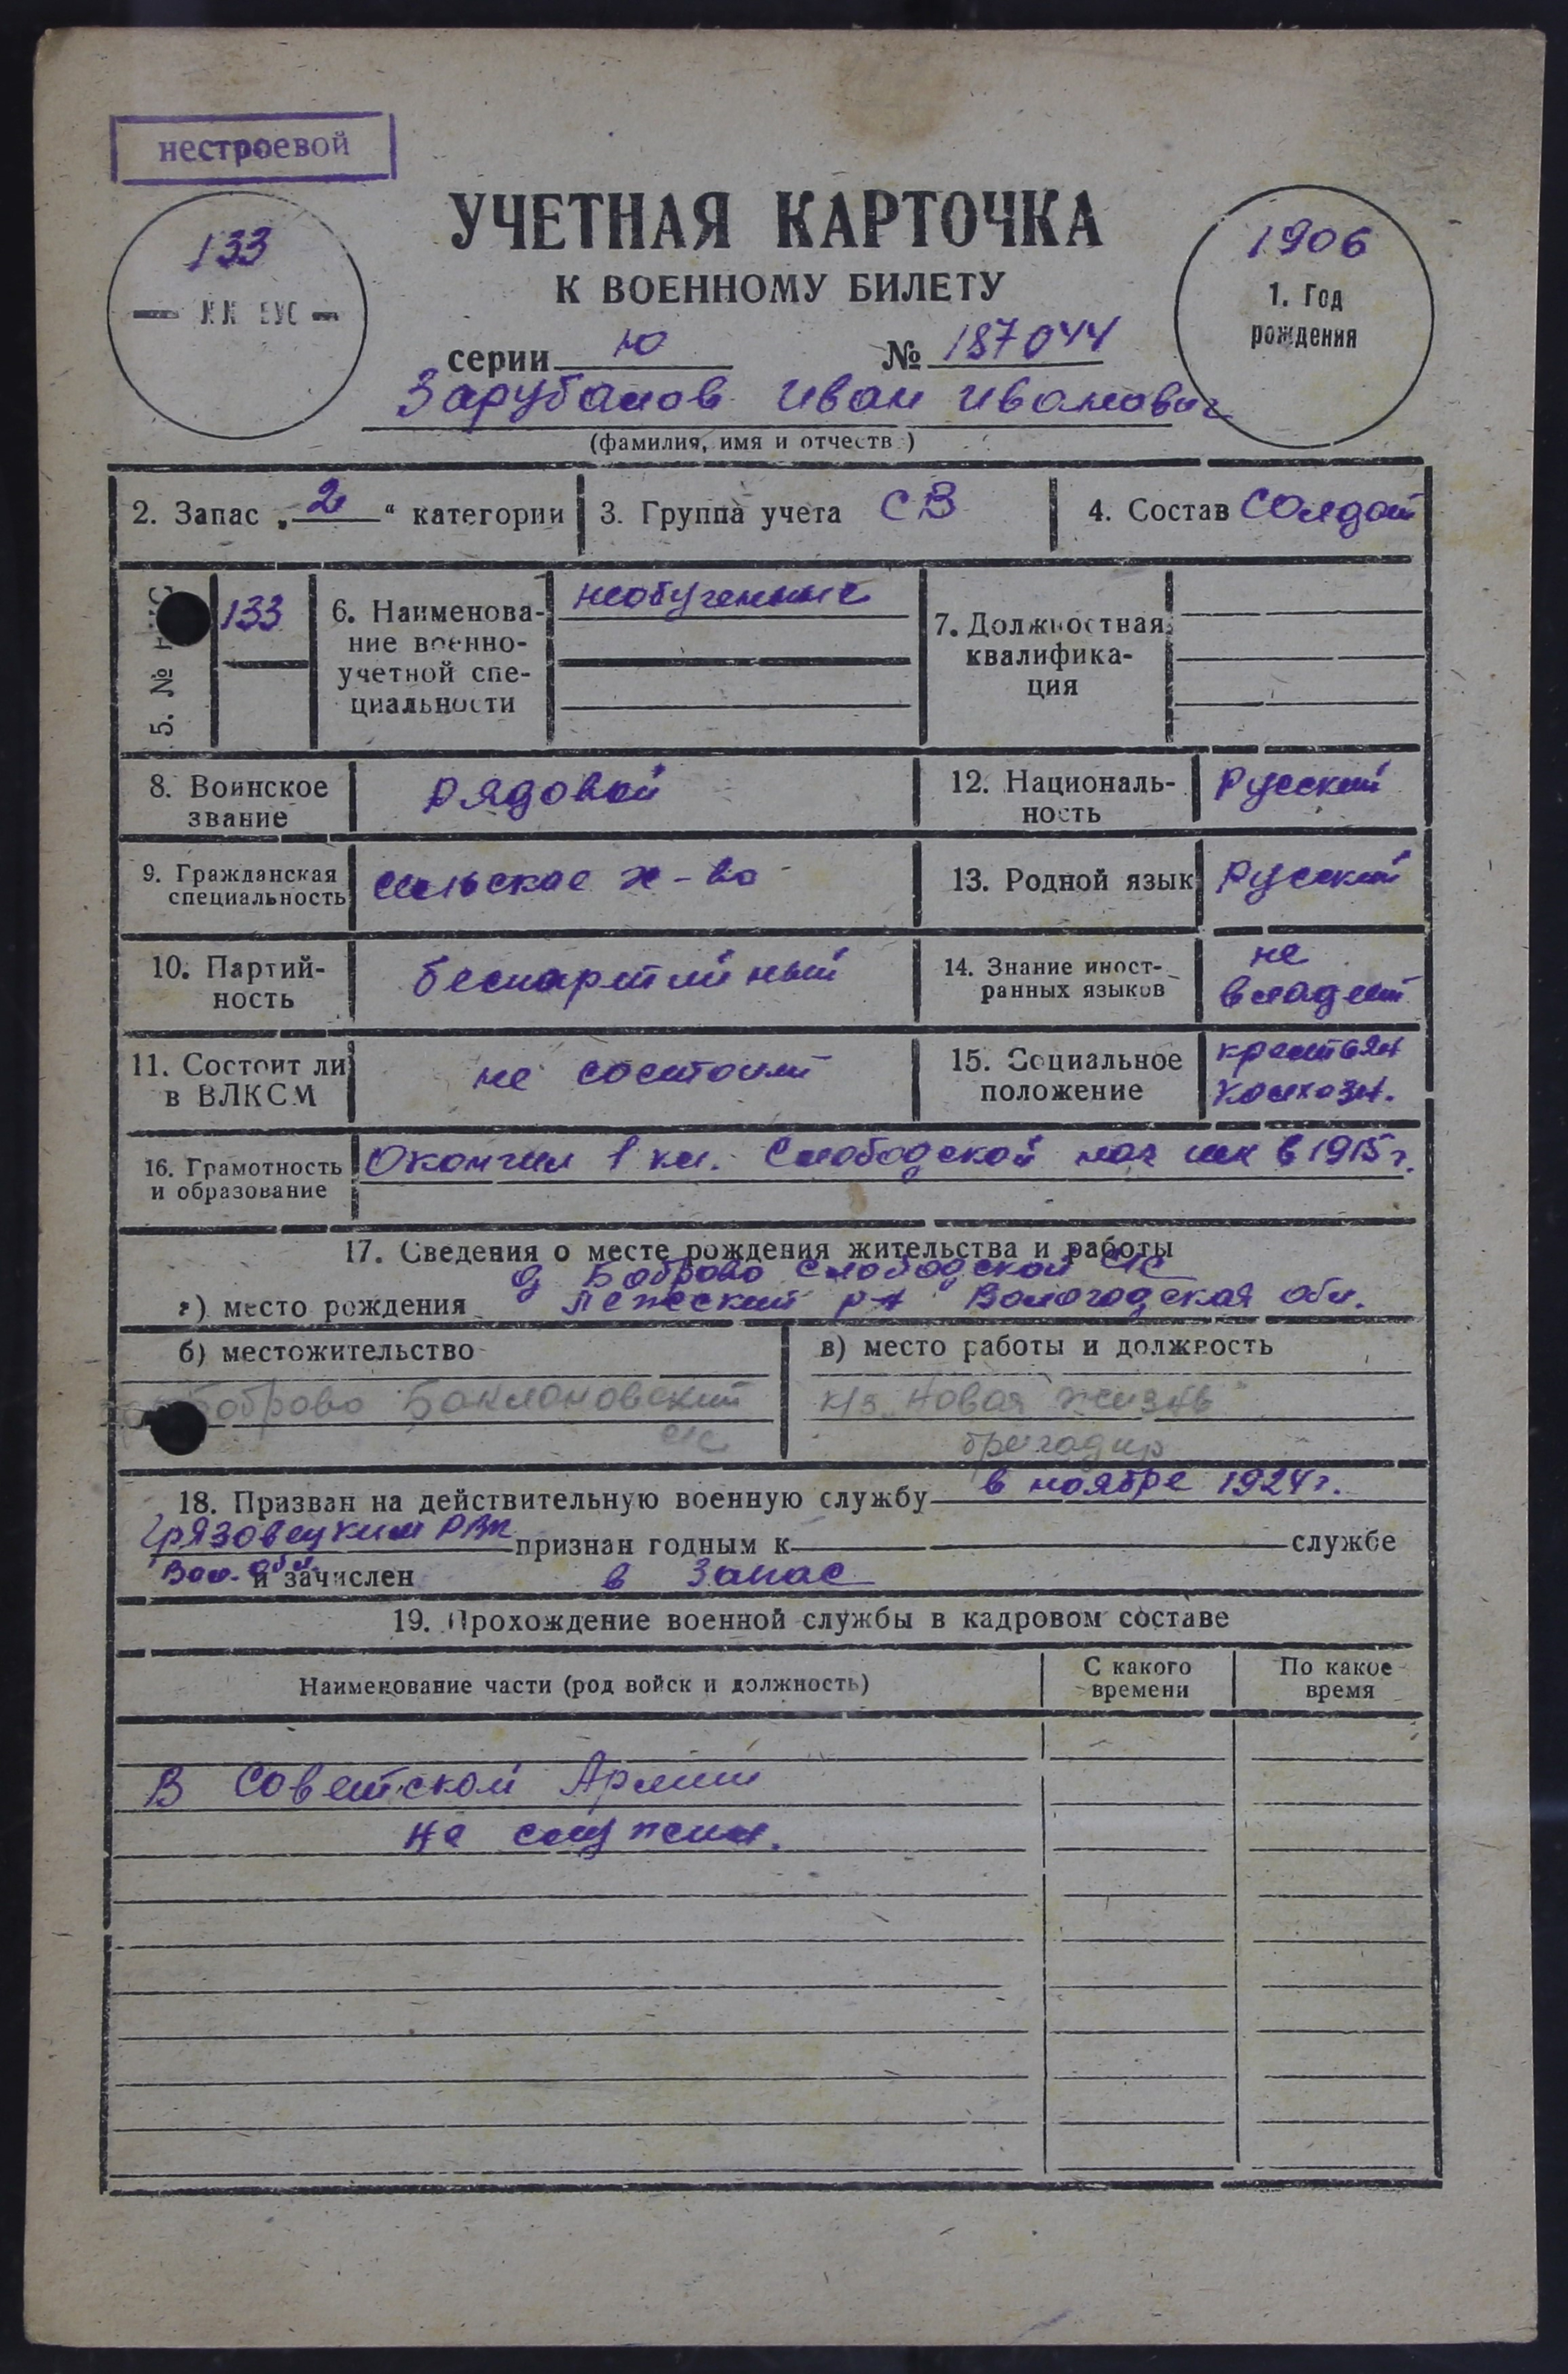 нестроевой
133
№№ ВУС
УЧЕТНАЯ КАРТОЧКА
К ВОЕННОМУ БИЛЕТУ
серии Ю № 187044
1906
1. Год
рождения
Зарубалов Иван Иванович
(фамилия, имя и отчеств )
2. Запас „2“ категории
3. Группа учета СВ
4. Состав Солдат
5. №
133
6. Наименова-
ние военно-
учетной спе-
циальности
необученные
7. Должностная
квалифика-
ция
8. Воинское
звание
рядовой
12. Националь-
ность
Русский
9. Гражданская
специальность
сельское х-во
13. Родной язык
Русский
10. Партий-
ность
беспартийный
14. Знание иност-
ранных языков
не
владеет
11. Состоит ли
в ВЛКСМ
не состоит
15. Социальное
положение
крестьян
колхозн.
16. Грамотность
и образование
Окончил 1 кл. Слободской нач шк в 1915 г.
17. Сведения о месте рождения жительства и работы
д Боброво Слободской с/с
а) место рождения Лежский р-н Вологодская обл.
б) местожительство
Боброво Баклановский
с/с
в) место работы и должность
к/з „Новая жизнь"
бригадир
18. Призван на действительную военную службу в ноябре 1924 г.
Грязовецким РВК признан годным к службе
Вол. обл. и зачислен в запас
19. Прохождение военной службы в кадровом составе
Наименование части (род войск и должность)
С какого
времени
По какое
время
В Советской Армии
не служил.